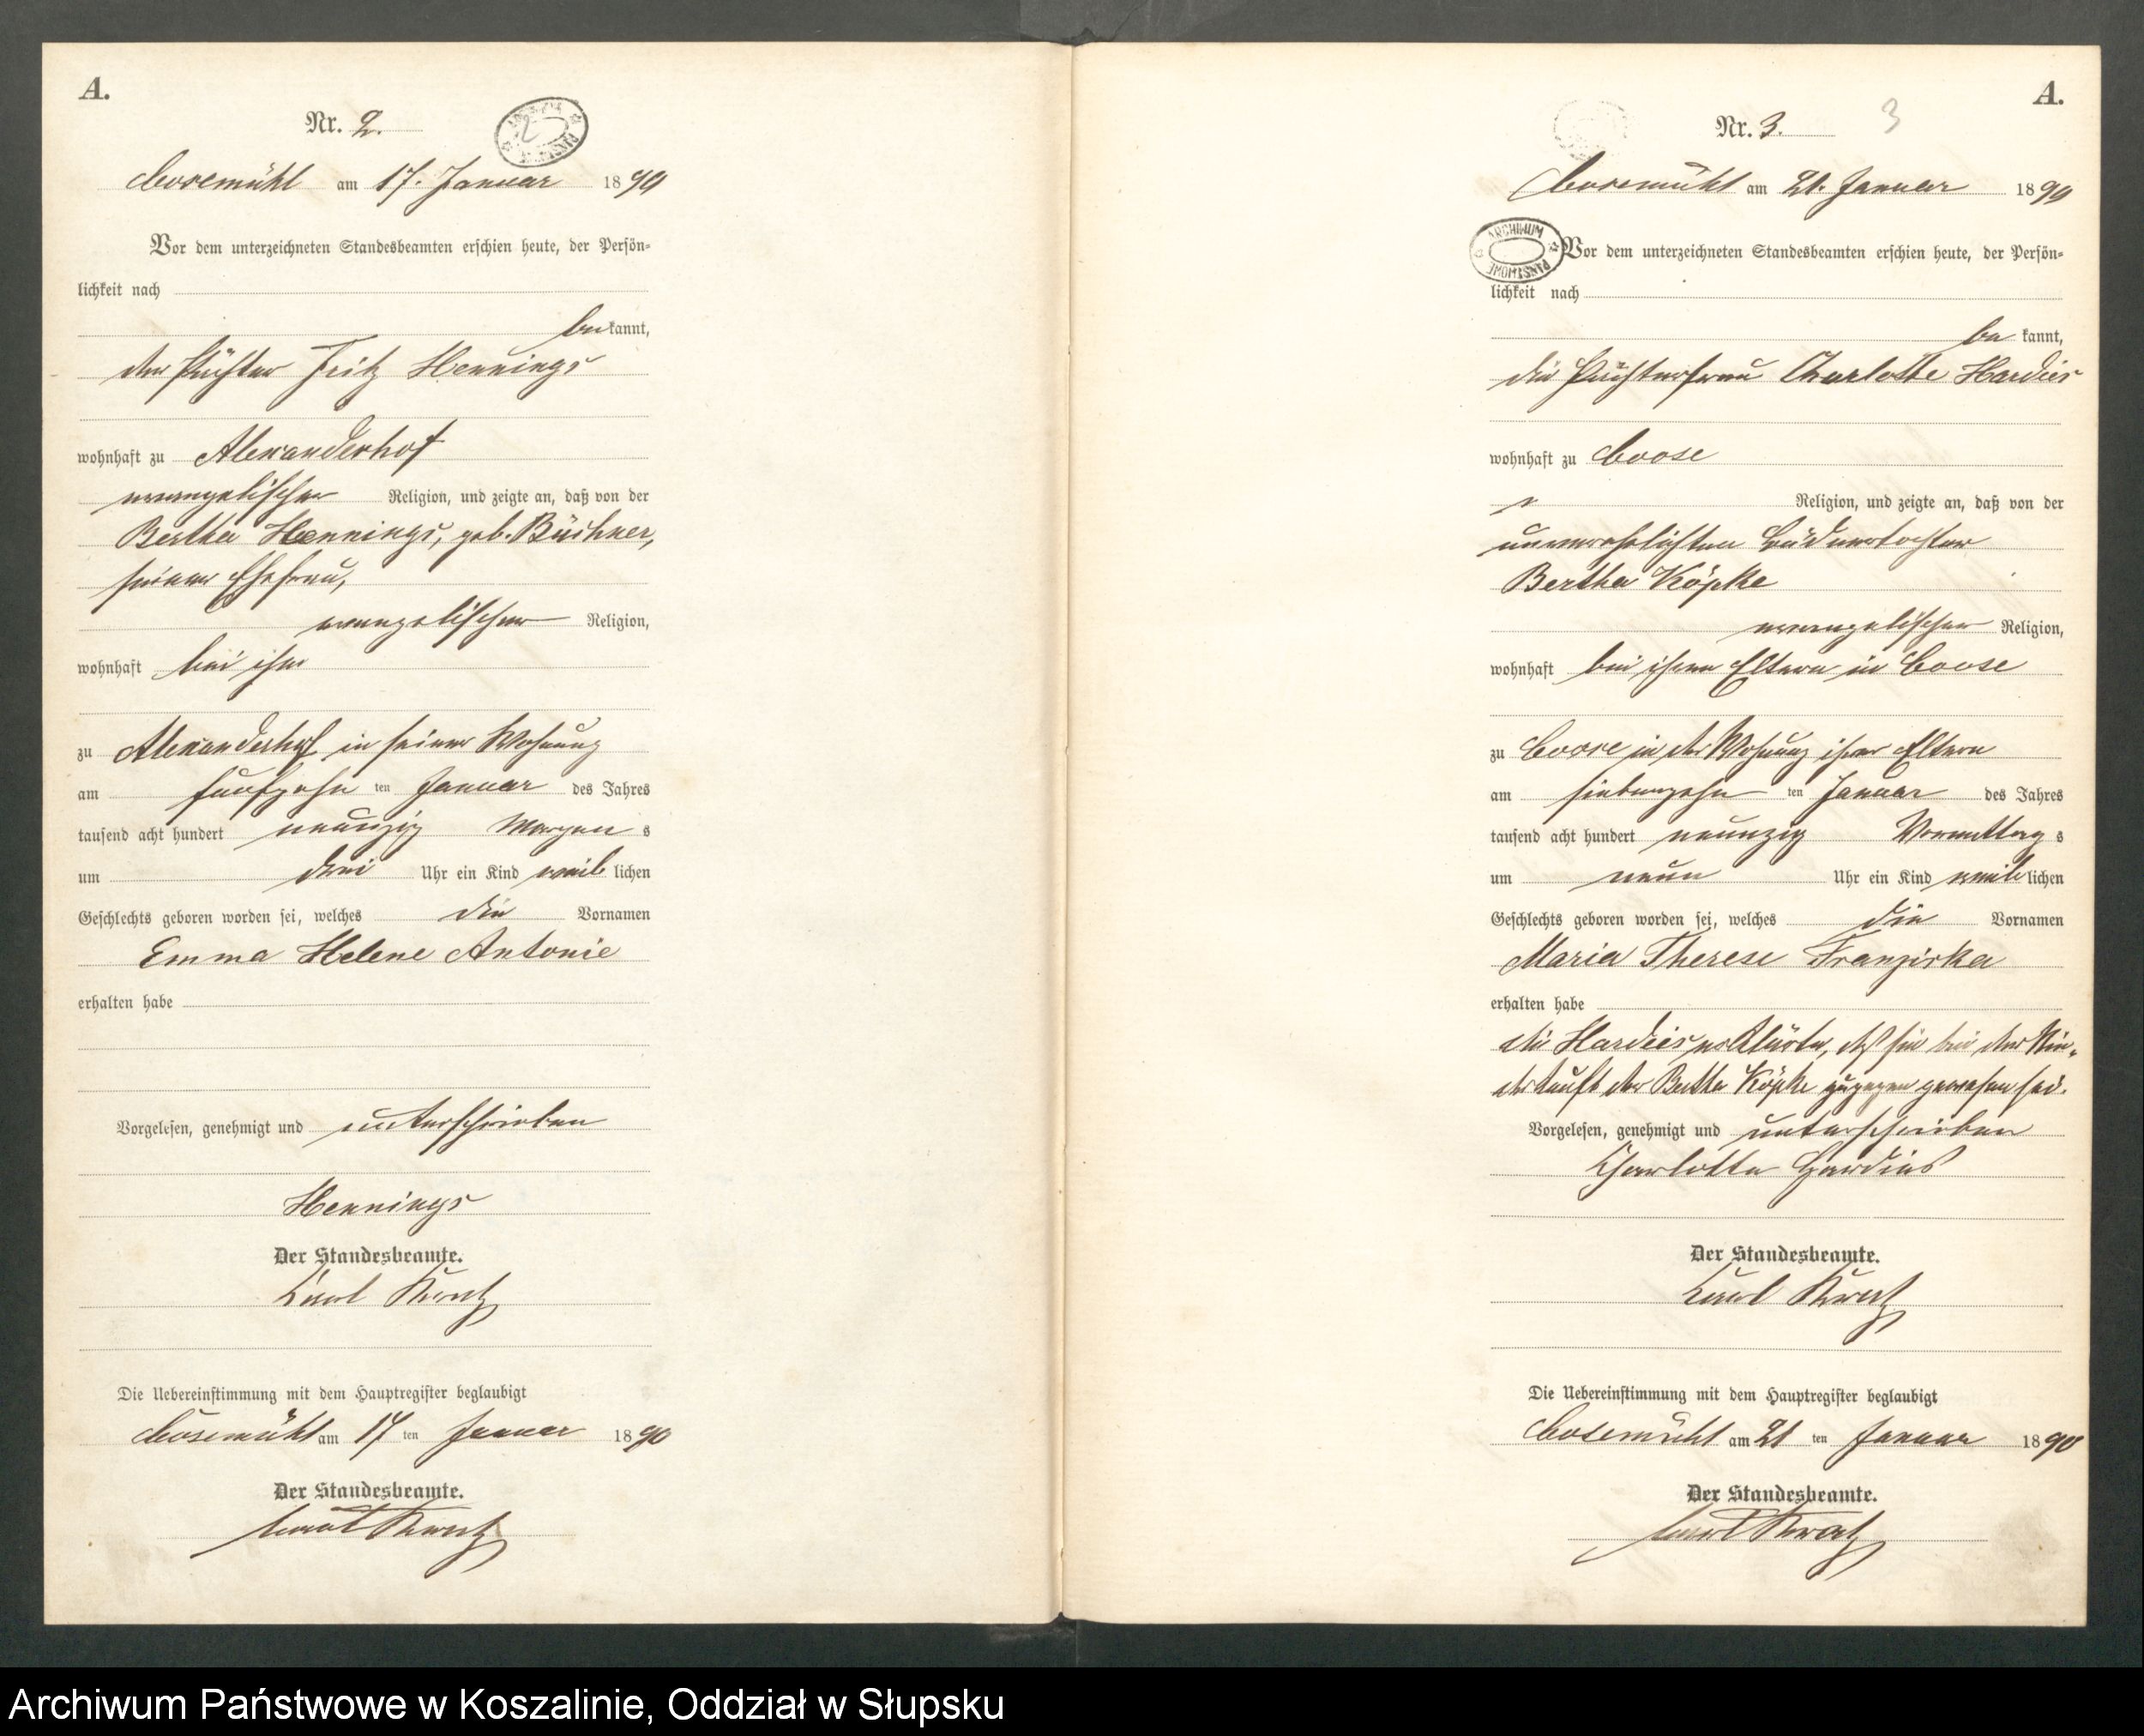 A.
Nr. 2.
Cosemühl am 17. Januar 1890
Vor dem unterzeichneten Standesbeamten erschien heute, der Persön-
lichkeit nach
bekannt,
der Pächter Fritz Hennings
wohnhaft zu Alexanderhof
evangelischer Religion, und zeigte an, daß von der
Bertha Hennings, geb. Büchner,
seiner Ehefrau,
evangelischer Religion,
wohnhaft bei ihm
zu Alexanderhof in seiner Wohnung
am fünfzehn ten Januar des Jahres
tausend acht hundert neunzig Morgens
um drei Uhr ein Kind weiblichen
Geschlechts geboren worden sei, welches die Vornamen
Emma Helene Antonie
erhalten habe
Vorgelesen, genehmigt und unterschrieben
Hennings
Der Standesbeamte.
Carl
Die Uebereinstimmung mit dem Hauptregister beglaubigt
Cosemühl am 17 ten Januar 1890
Der Standesbeamte.
Carl
A.
Nr. 3. 3
Cosemühl am 21. Januar 1890
ARCHIWUM PAŃSTWOWE
Vor dem unterzeichneten Standesbeamten erschien heute, der Persön-
lichkeit nach
bekannt,
die Pächterfrau Charlotte Hardies
wohnhaft zu Coose
Religion, und zeigte an, daß von der
unverehelichten Büdnertochter
Bertha Köpke
evangelischer Religion,
wohnhaft bei ihren Eltern in Coose
zu Coose in der Wohnung ihrer Eltern
am siebenzehn ten Januar des Jahres
tausend acht hundert neunzig Vormittags
um neun Uhr ein Kind weiblichen
Geschlechts geboren worden sei, welches die Vornamen
Maria Therese Franziska
erhalten habe
die Hardies erklärte, daß sie bei der Nie-
derkunft der Bertha Köpke zugegen gewesen sei.
Vorgelesen, genehmigt und unterschrieben
Charlotte Hardies
Der Standesbeamte.
Carl
Die Uebereinstimmung mit dem Hauptregister beglaubigt
Cosemühl am 21 ten Januar 1890
Der Standesbeamte.
Carl
Archiwum Państwowe w Koszalinie, Oddział w Słupsku